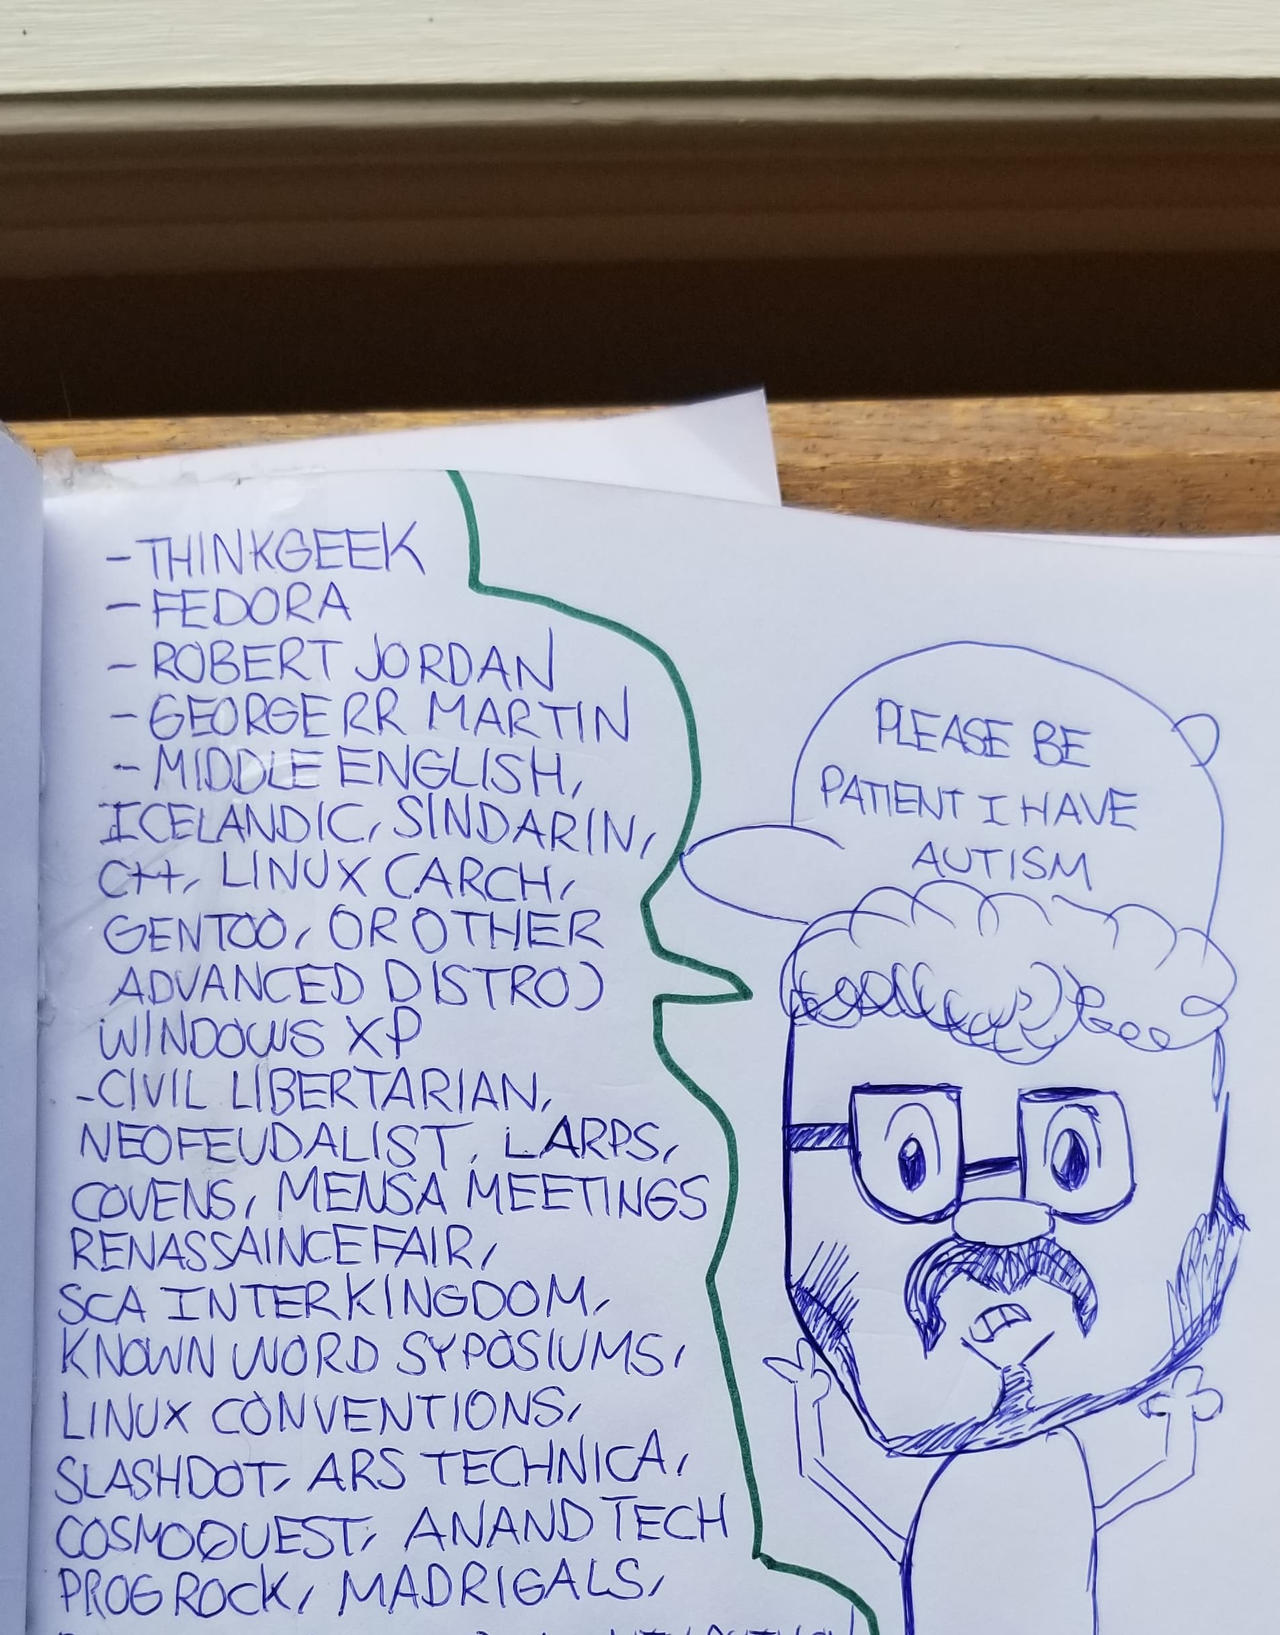 - THINKGEEK
- FEDORA
- ROBERT JORDAN
- GEORGE RR MARTIN
- MIDDLE ENGLISH,
ICELANDIC, SINDARIN,
C++, LINUX (ARCH,
GENTOO, OR OTHER
ADVANCED DISTRO)
WINDOWS XP
- CIVIL LIBERTARIAN,
NEOFEUDALIST, LARPS,
COVENS, MENSA MEETINGS
RENASSAINCE FAIR,
SCA INTERKINGDOM,
KNOWN WORD SYPOSIUMS,
LINUX CONVENTIONS,
SLASHDOT, ARS TECHNICA,
COSMOQUEST, ANANDTECH
PROG ROCK, MADRIGALS,
PLEASE BE
PATIENT I HAVE
AUTISM